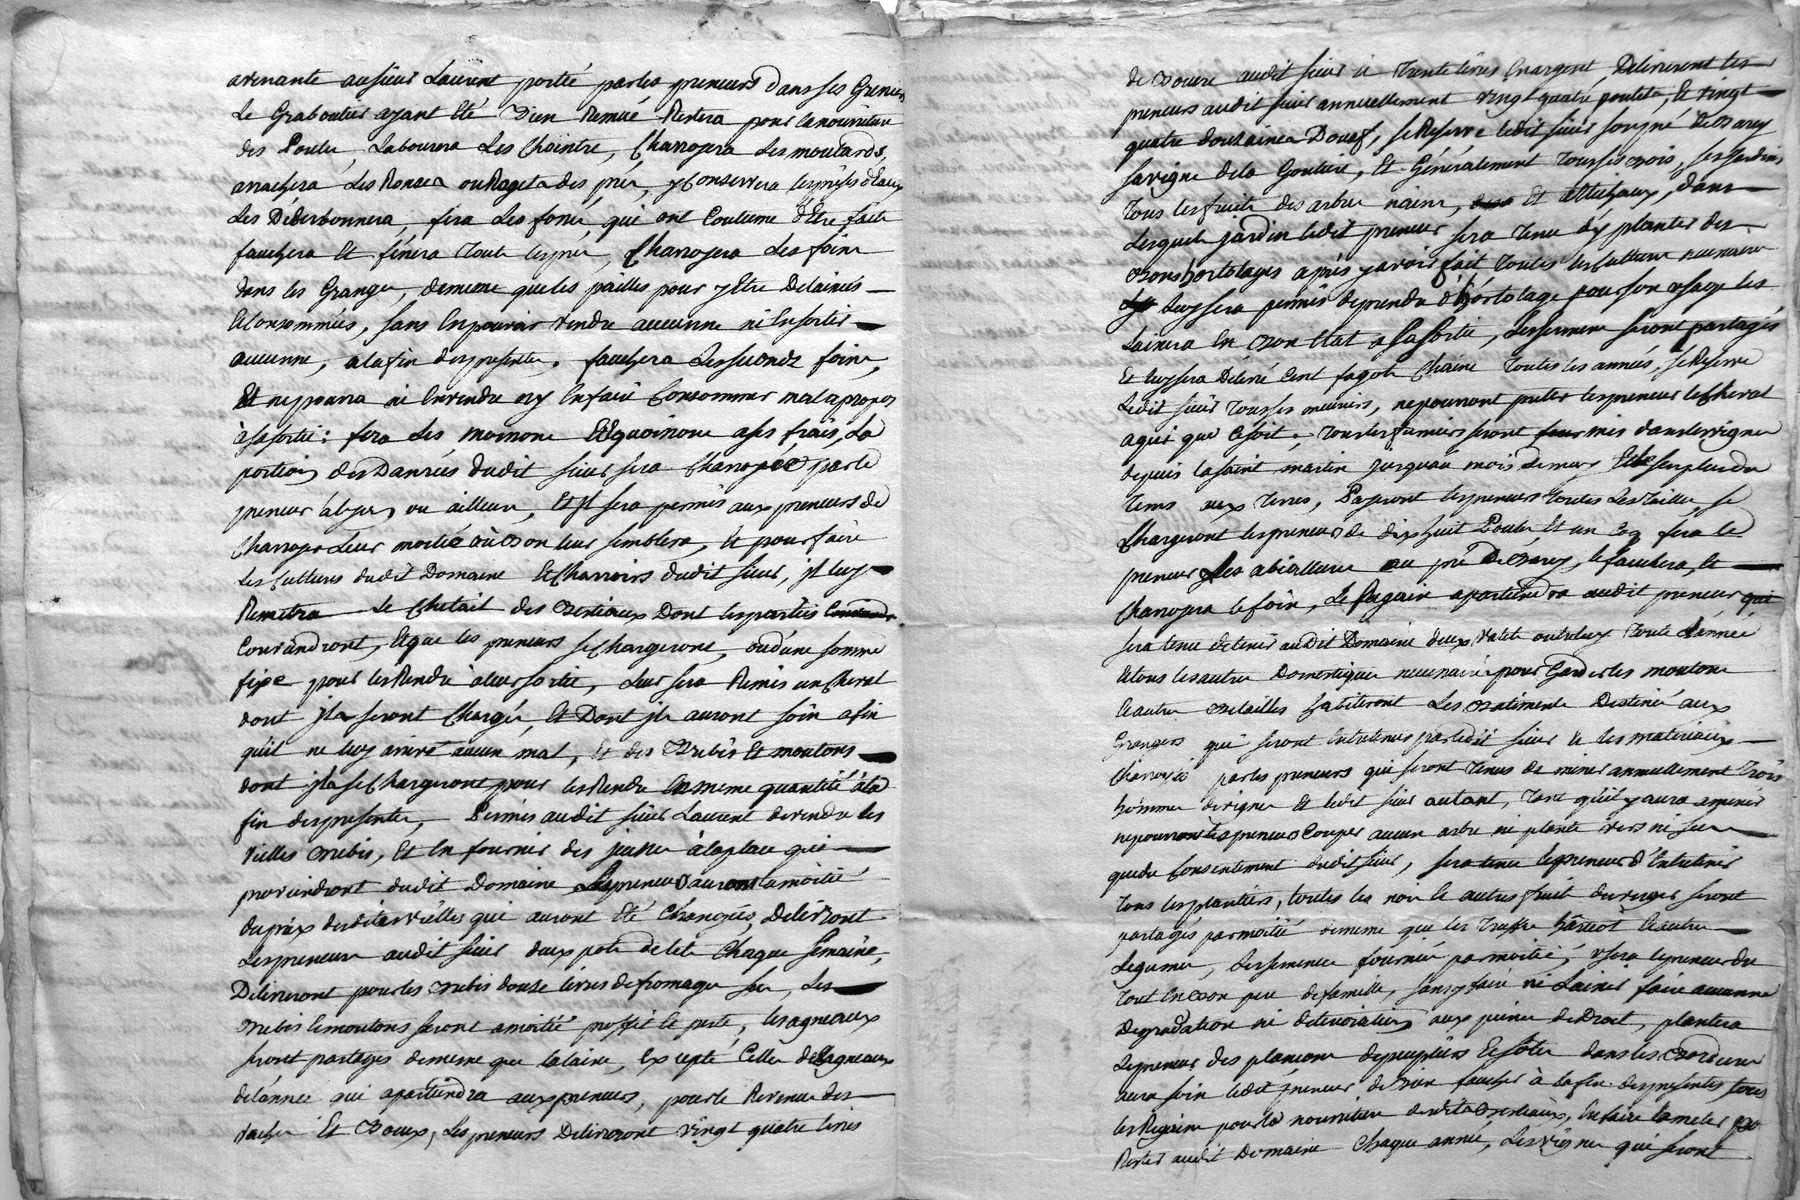 avenante au sieur Laurent portée par les preneurs dans ses Greniers
Le Graboutier ayant Eté bien Remué Restera pour la nouriture
des Poules, Labourera Les Chointre, Charroyera Les moutards,
arrachera Les Ronses ou Ragets des prés, y Conservera les prises d'Eaux
Les Déderbonnera, fera Les fonse, qui ont Coutume d'Etre faite
fauchera Et fénera Toute les prés, Charroyera Les foins
dans les Granges, de meme que les pailles pour y Etre Delaissés
Et Consommées, sans En pouvoir vendre aucunne ni En sortir
aucunne, a la fin des presentes, fauchera Les seconds foins,
Et ne pourra ni En vendre ny En faire Consommer mal a propos
à sa sortie: fera Les moissons Et a ses frais, La
portion des Danrées dudit sieur sera Charroyée par le
preneur à ou ailleurs, Et Jl sera permis aux preneurs de
Charroyer Leur moitié où Bon leur semblera, Et pour faire
Les Cultures dudit Domaine Et Charrois dudit sieur, jl luy
Remettra Le Chetail des Bestiaux Dont les parties
Conviendront, Et que les preneurs se Chargeront, ou d'une somme
fixe pour les Rendre à leur sortie, Leur sera Remis un Cheval
dont jls seront Chargés, Et Dont jls auront soin afin
qu'il ne luy arrive aucun mal, Et des Brebis Et moutons
dont jls se Chargeront pour les Rendre En meme quantité à la
fin des presentes, Permis audit sieur Laurent de vendre les
vielles Brebis, Et En fournir des jeunes à la place qui
proviendront dudit Domaine Les preneurs auront la moitié
du prix desdites vielles qui auront Eté Changées, Delivront
Les preneurs audit sieur deux pots de lait Chaque semaine,
Delivreront pour les Brebis douze livres de fromage sec, Les
Brebis Et moutons seront a moitié proffit Et perte, les agneaux
seront partagés de meme que la laine, Excepté Celle des agneaux
de l'année qui apartiendra aux preneurs, pour le Revenu des
vaches Et Boeufs, Les preneurs Delivreront vingt quatre livres
de Beurre audit sieur Et Trente livres En argent, Delivreront les
preneurs audit sieur annuellement vingt quatre poulets, Et vingt
quatre douzaines D'oeuf, se Reserve ledit sieur son pré de Barey
sa vigne de la Goutiere, Et Généralement Tous ses Bois, ses Jardins
Tous les fruits des arbres nains, Et artichaux, dans
Lesquels jardin ledit preneur sera Tenu d'y planter des
Bons hortolages après y avoir fait Toutes les Cultures necessaire
Luy sera permis de prendre d'hortolage pour son usage les
Laissera En Bon Etat a sa sortie, Les serment seront partagés
Et luy sera Delivré Cent fagots Chaine Toutes les années, se Reserve
Ledit sieur Tous ses meuriers, ne pourront preter les preneurs le Cheval
a qui que ce soit. Tous les fumiers seront mis dans les vignes
depuis la saint martin jusqu'au mois de mars Et le surplus du
Tems aux Terres, Payeront les preneurs Toutes Les Tailles, se
Chargeront les preneurs de dix huit Poules Et un Coq, fera le
preneur Les abiallure au pré De Barey, le fauchera, Et
Charroyera le foin, Le Regain apartiendra audit preneur qui
sera tenu de tenir audit Domaine deux valets outre luy Toute L'année
Et tous les autres Domestiques necessaire pour Garder les moutons
Et autres Betailles habiteront Les Batiments Destiné aux
Grangers qui seront Entretenus par ledit sieur Et les materiaux
Charroyés par les preneurs qui seront Tenus de miner annuellement Trois
hommes de vignes Et ledit sieur autant, Tant qu'il y aura a miner
ne pourront les preneurs Couper aucun arbre ni plante vers ni secs
que du Consentement dudit sieur, sera tenu le preneur d'Entretenir
Tous les plantiers, toutes les noix Et autres fruit du verger seront
partagés par moitié de meme que les Truffes haricot Et autres
Legumes, Les semences fournies par moitié, usera le preneur du
Tout En Bon pere de famille, sans y faire ni Laisser faire aucunne
Degradation ni deterioration aux peines de Droit, plantera
Le preneur des plançons de peupliers Et sole dans les Bordures
aura soin ledit preneur de bien faucher à la fin des presentes tous
les Regains pour la nourriture desdits Bestiaux, En faire la meler pour
Rester audit Domaine Chaque année, Les vignes qui seront